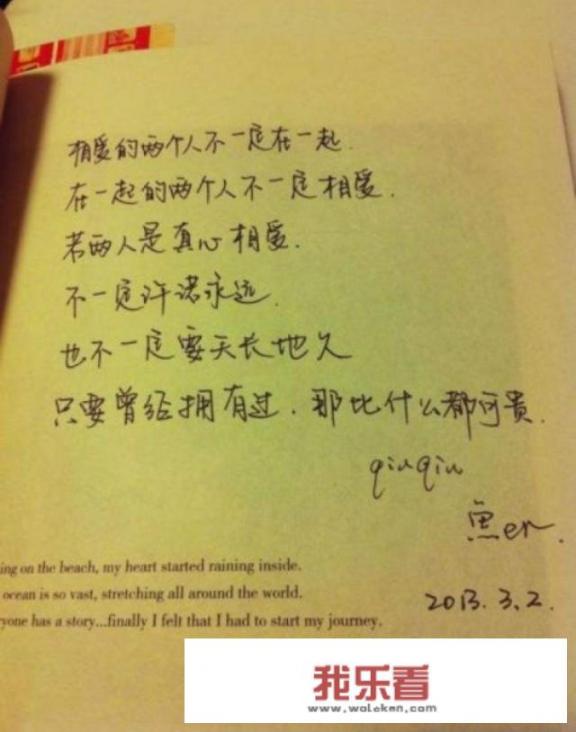 相爱的两个人不一定在一起.
在一起的两个人不一定相爱.
若两人是真心相爱.
不一定许诺永远.
也不一定要天长地久
只要曾经拥有过.那比什么都可贵.
qiuqiu
鱼er.
2013.3.2.
ing on the beach, my heart started raining inside.
ocean is so vast, stretching all around the world.
yone has a story...finally I felt that I had to start my journey.
我乐看
www.woleken.com